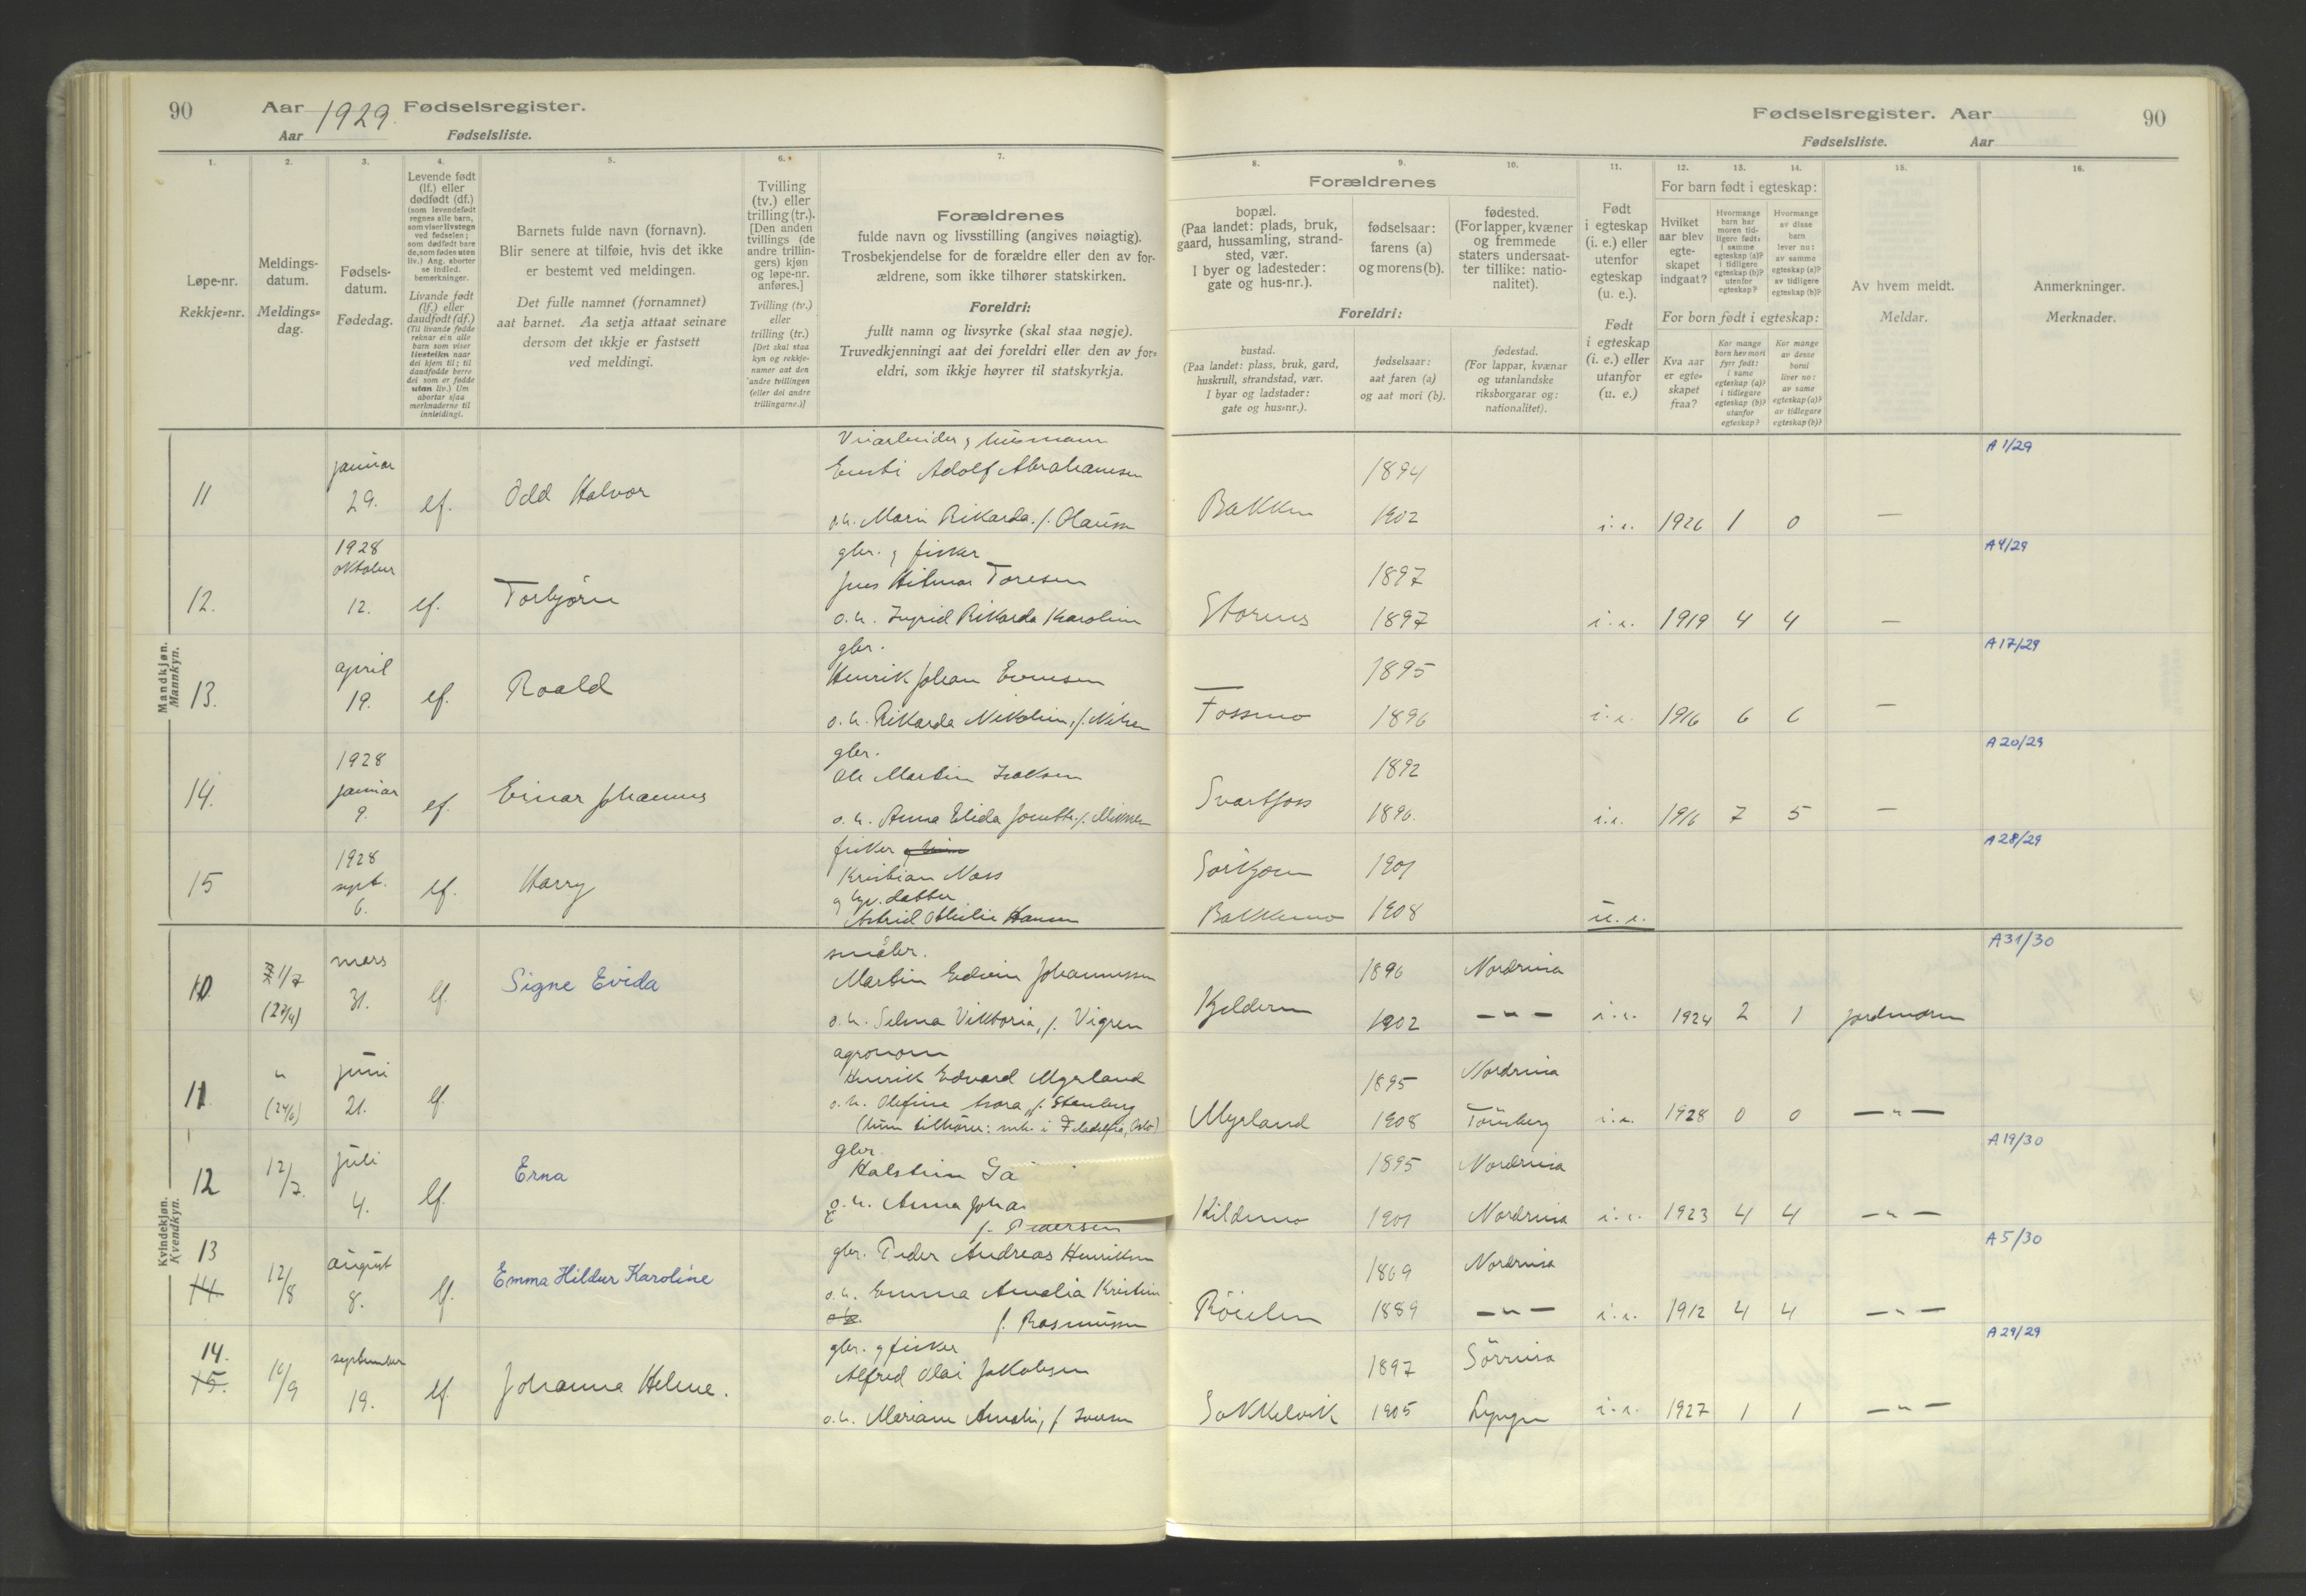 90
Aar 1929. Fødselsregister.
Aar Fødselsliste.
1.
Løpe-nr.
Rekkje=nr.
2.
Meldings-
datum.
Meldings=
dag.
3.
Fødsels-
datum.
Fødedag.
4.
Levende født
(lf.) eller
dødfødt (df.)
(som levendefødt
regnes alle barn,
som viser livstegn
ved fødselen;
som dødfødt bare
de, som fødes uten
liv.) Ang. aborter
se indled.
bemerkninger.
Livande født
(lf.) eller
daudfødt (df.)
(Til livande fødde
reknar ein alle
barn som viser
livsteikn naar
dei kjem til; til
daudfødde berre
dei som er fødde
utan liv.) Um
abortar sjaa
merknaderne til
innleidingi.
5.
Barnets fulde navn (fornavn).
Blir senere at tilføie, hvis det ikke
er bestemt ved meldingen.
Det fulle namnet (fornamnet)
aat barnet. Aa setja attaat seinare
dersom det ikkje er fastsett
ved meldingi.
6.
Tvilling
(tv.) eller
trilling (tr.).
[Den anden
tvillings (de
andre trillin-
gers) kjøn
og løpe-nr.
anføres.]
Tvilling (tv.)
eller
trilling (tr.)
[Det skal staa
kyn og rekkje-
numer aat den
andre tvillingen
(eller dei andre
trillingarne.)]
7.
Forældrenes
fulde navn og livsstilling (angives nøiagtig).
Trosbekjendelse for de forældre eller den av for-
ældrene, som ikke tilhører statskirken.
Foreldri:
fullt namn og livsyrke (skal staa nøgje).
Truvedkjenningi aat dei foreldri eller den av for=
eldri, som ikkje høyrer til statskyrkja.
Fødselsregister. Aar
90
Fødselsliste. Aar
8.
Forældrenes
bopæl.
(Paa landet: plads, bruk,
gaard, hussamling, strand-
sted, vær.
I byer og ladesteder:
gate og hus-nr.).
Foreldri:
bustad.
(Paa landet: plass, bruk, gard,
huskrull, strandstad, vær.
I byar og ladstader:
gate og hus=nr.).
9.
fødselsaar:
farens (a)
og morens (b).
fødselsaar:
aat faren (a)
og aat mori (b).
10.
fødested.
(For lapper, kvæner
og fremmede
staters undersaat-
ter tillike: natio-
nalitet).
fødestad.
(For lappar, kvænar
og utanlandske
riksborgarar og:
nationalitet).
11.
Født
i egteskap
(i. e.) eller
utenfor
egteskap
(u. e.).
Født
i egteskap
(i. e.) eller
utanfor
(u. e.)
12.
13.
14.
For barn født i egteskap:
Hvilket
aar blev
egte-
skapet
indgaat?
Hvormange
barn har
moren tid-
ligere født:
i samme
egteskap (a)?
i tidligere
egteskap (b)?
utenfor
egteskap?
Hvormange
av disse
barn
lever nu:
av samme
egteskap (a)?
av tidligere
egteskap (b)?
For born født i egteskap:
Kva aar
er egte-
skapet
fraa?
Kor mange
born hev mori
fyrr født:
i same
egteskap (a)?
i tidlegare
egteskap (b)?
utanfor
egteskap?
Kor mange
av desse
borni
liver no:
av same
egteskap (a)?
av tidlegare
egteskap (b)?
15.
Av hvem meldt.
Meldar.
16.
Anmerkninger.
Merknader.
Mandkjøn.
Mannkyn.
11
januar
29.
lf.
Odd Halvor
Adolf Abrahamsen
o.h. Marie Rikarda. f. Olaussen
Bakken
1894
1902
i.e. 1926 1 0 —
A 1/29
12.
1928
oktober
12.
lf.
Torbjørn
gbr. g fisker
Jens Hilmar Toresen
o.h. Ingrid Rikarda Karoline
Storenes
1897
1897
i.e. 1919 4 4 —
A 4/29
13.
april
19.
lf.
Roald
gbr.
Henrik Johan Evensen
o.h. Rikarda Nikoline, f. Nilsen
Fossmo
1895
1896
i.e. 1916 6 6 —
A 17/29
14.
1928
januar
9.
lf.
Einar Johannes
gbr.
Ole Martin Isaksen
o.h. Anna Elida
Svartfoss
1892
1896.
i.e. 1916 7 5 —
A 20/29
15
1928
sept.
6.
lf.
Harry
fisker
Kristian Næss
g datter
Astrid Othilie Hansen
Bakkemo
1901
1908
u.e.
A 28/29
Kvindekjøn.
Kvendkyn.
10
1/7
(27/4)
mars
31.
lf.
Signe Evida
småbr.
Martin Edvin Johannessen
o.h. Selma Viktoria, f. Vigren
Kjelderen
1896
1902
Nordreisa
— " —
i.e. 1924 2 1 jordmoren
A 31/30
11.
"
(24/6)
juni
21.
lf.
agronom
Henrik Edvard Myrland
o.h. Olefine Isora, f. Stenberg
(hun tilhører: mh. i Filadelfia, Oslo)
Myrland
1895
1908
Nordreisa
Tönsberg
i.e. 1928 0 0 — " —
12
12/7.
juli
4.
lf.
Erna
gbr.
Halstein Ga
o.h. Anna Joha
f. Pedersen
Kildemo
1895
1901
Nordreisa
Nordreisa
i.e. 1923 4 4 — " —
A 19/30
13
14.
12/8
august
8.
lf.
Emma Hildur Karoline
gbr. Peder Andreas Henriksen
o.h. Emma Amalia Kristine
f. Rasmussen
Röielen
1869
1889
Nordreisa
— " —
i.e. 1912 4 4 — " —
A 5/30
14.
15.
16/9
september
19.
lf
Johanna Helene.
gbr. g fisker
Alfred Olai Jakobsen
o.h. Mariane Amalie, f Iversen
Sokkelvik
1897
1905
Sörreisa
Lyngen
i.e. 1927 1 1 — " —
A 29/29